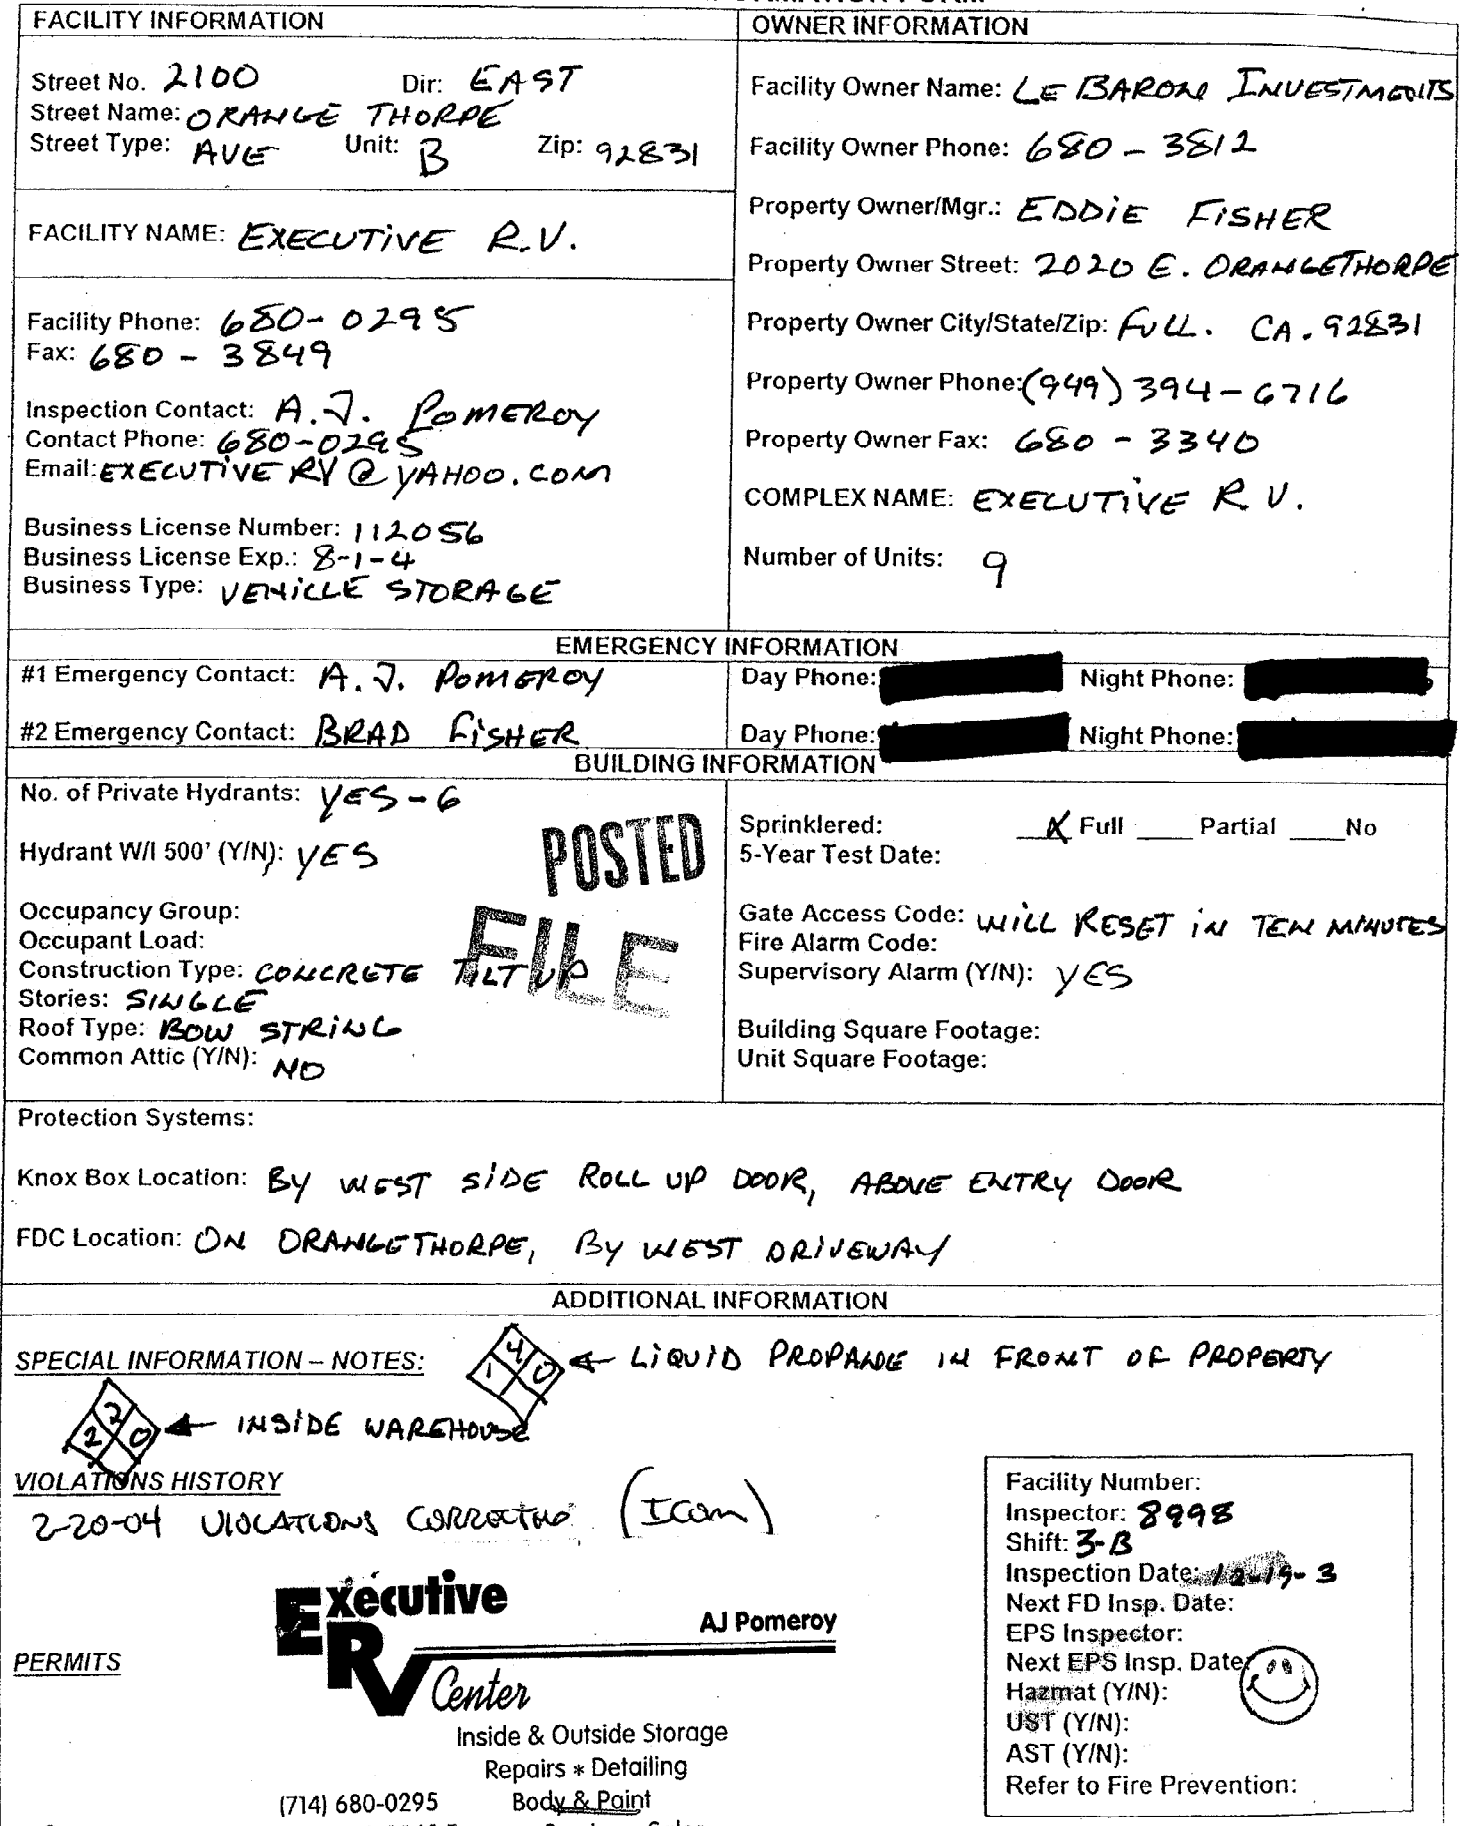 FACILITY INFORMATION
Street No. 2100 Dir: EAST
Street Name: ORANGE THORPE
Street Type: AVE Unit: B Zip: 92831
FACILITY NAME: EXECUTIVE R.V.
Facility Phone: 680-0295
Fax: 680 - 3849
Inspection Contact: A.J. POMEROY
Contact Phone: 680-0295
Email: EXECUTIVE RV @ YAHOO.COM
Business License Number: 112056
Business License Exp.: 8-1-4
Business Type: VEHICLE STORAGE
OWNER INFORMATION
Facility Owner Name: LE BARON INVESTMENTS
Facility Owner Phone: 680 - 3812
Property Owner/Mgr.: EDDIE FISHER
Property Owner Street: 2020 E. ORANGETHORPE
Property Owner City/State/Zip: FULL. CA. 92831
Property Owner Phone: (949) 394-6716
Property Owner Fax: 680 - 3340
COMPLEX NAME: EXECUTIVE R.V.
Number of Units: 9
EMERGENCY INFORMATION
#1 Emergency Contact: A.J. POMEROY Day Phone: Night Phone:
#2 Emergency Contact: BRAD FISHER Day Phone: Night Phone:
BUILDING INFORMATION
No. of Private Hydrants: YES - 6
Hydrant W/I 500' (Y/N): YES
POSTED
FILE
Occupancy Group:
Occupant Load:
Construction Type: CONCRETE TILT UP
Stories: SINGLE
Roof Type: BOW STRING
Common Attic (Y/N): NO
Sprinklered: X Full ____ Partial ____ No
5-Year Test Date:
Gate Access Code: WILL RESET IN TEN MINUTES
Fire Alarm Code:
Supervisory Alarm (Y/N): YES
Building Square Footage:
Unit Square Footage:
Protection Systems:
Knox Box Location: BY WEST SIDE ROLL UP DOOR, ABOVE ENTRY DOOR
FDC Location: ON ORANGETHORPE, BY WEST DRIVEWAY
ADDITIONAL INFORMATION
SPECIAL INFORMATION – NOTES: 1 4 0 ← LIQUID PROPANE IN FRONT OF PROPERTY
2 2 0 ← INSIDE WAREHOUSE
VIOLATIONS HISTORY
2-20-04 VIOLATIONS CORRECTED (ICom)
Executive
RV
Center
AJ Pomeroy
PERMITS
Inside & Outside Storage
Repairs * Detailing
(714) 680-0295 Body & Paint
Facility Number:
Inspector: 8998
Shift: 3-B
Inspection Date: 12-19-3
Next FD Insp. Date:
EPS Inspector:
Next EPS Insp. Date:
Hazmat (Y/N):
UST (Y/N):
AST (Y/N):
Refer to Fire Prevention: